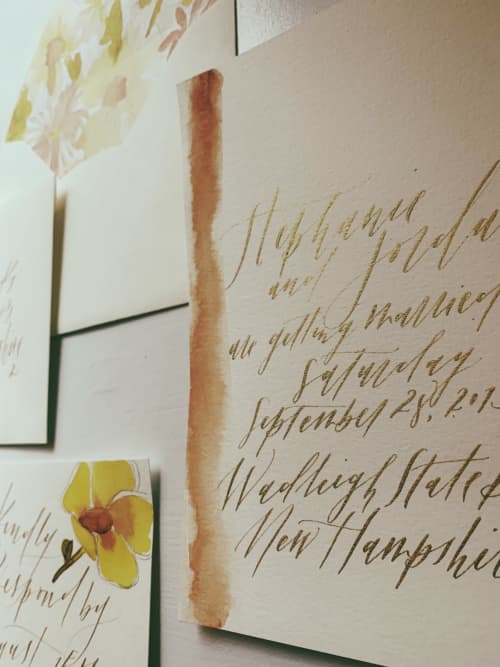 Stephanie
and Jorda
are getting married
Saturday
September 28, 201
Wadleigh State
New Hampshir
Kindly
respond by
August